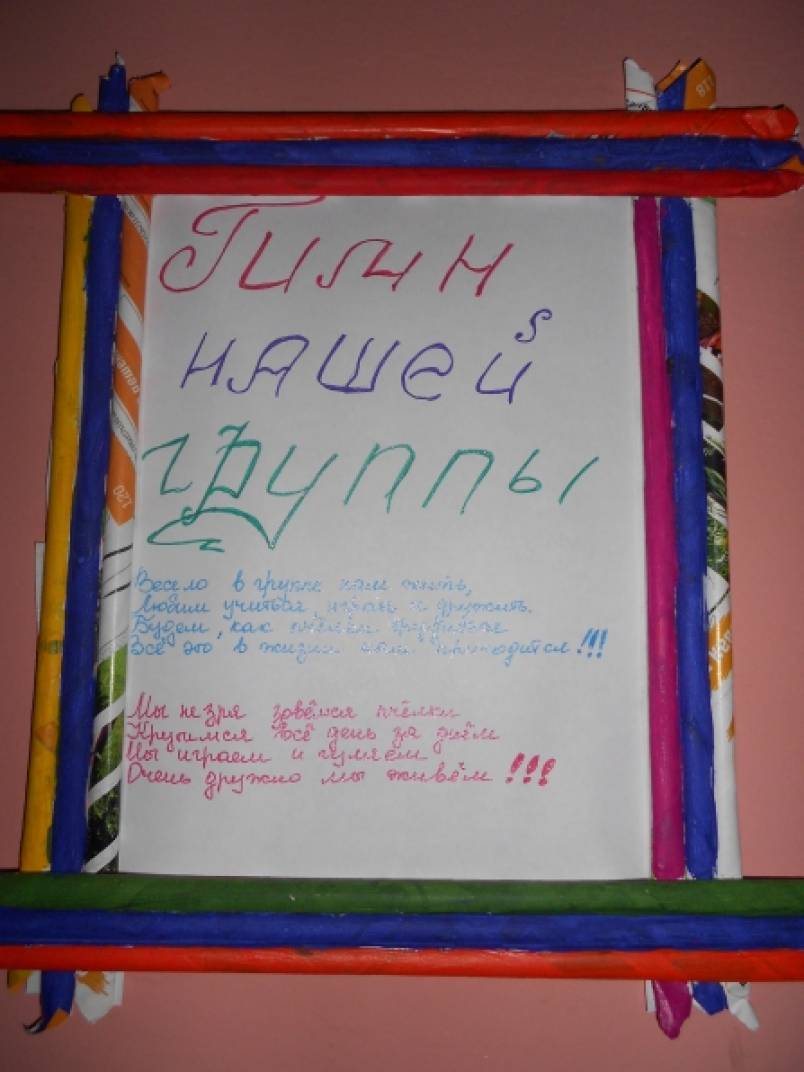 Гимн
нашей
группы
Весело в группе нам жить,
Любим учиться, играть и дружить.
Будем, как пчёлки трудиться
Всё это в жизни нам пригодится!!!
Мы не зря зовёмся пчёлки
Крутимся всё день за днём
Мы играем и гуляем
Очень дружно мы живём!!!
120
118